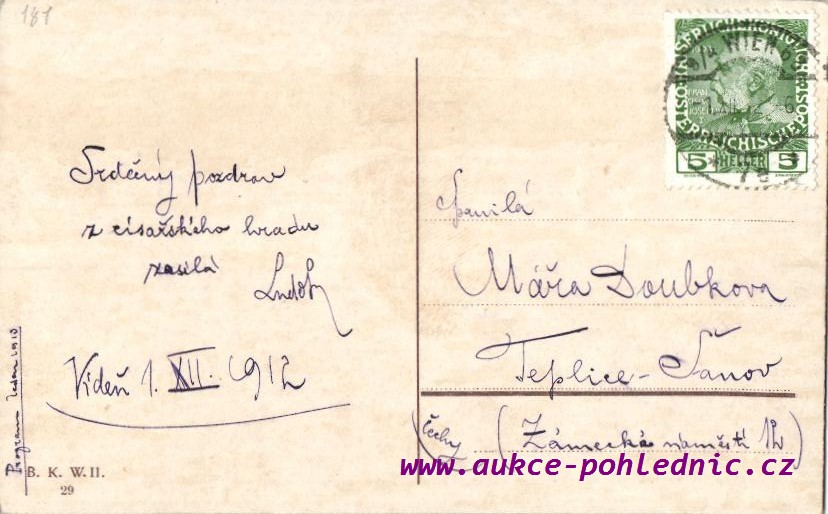 181
Srdečný pozdrav
z císařského hradu
zasílá
Vídeň 1. XII. 1912
B. K. W. II.
29
OESTERREICHISCHE
WIEN
5 HELLER 5
Spanilá
Mářa Doubkova
Teplice - Šánov
(Čechy) (Zámecké náměstí 12)
www.aukce-pohlednic.cz